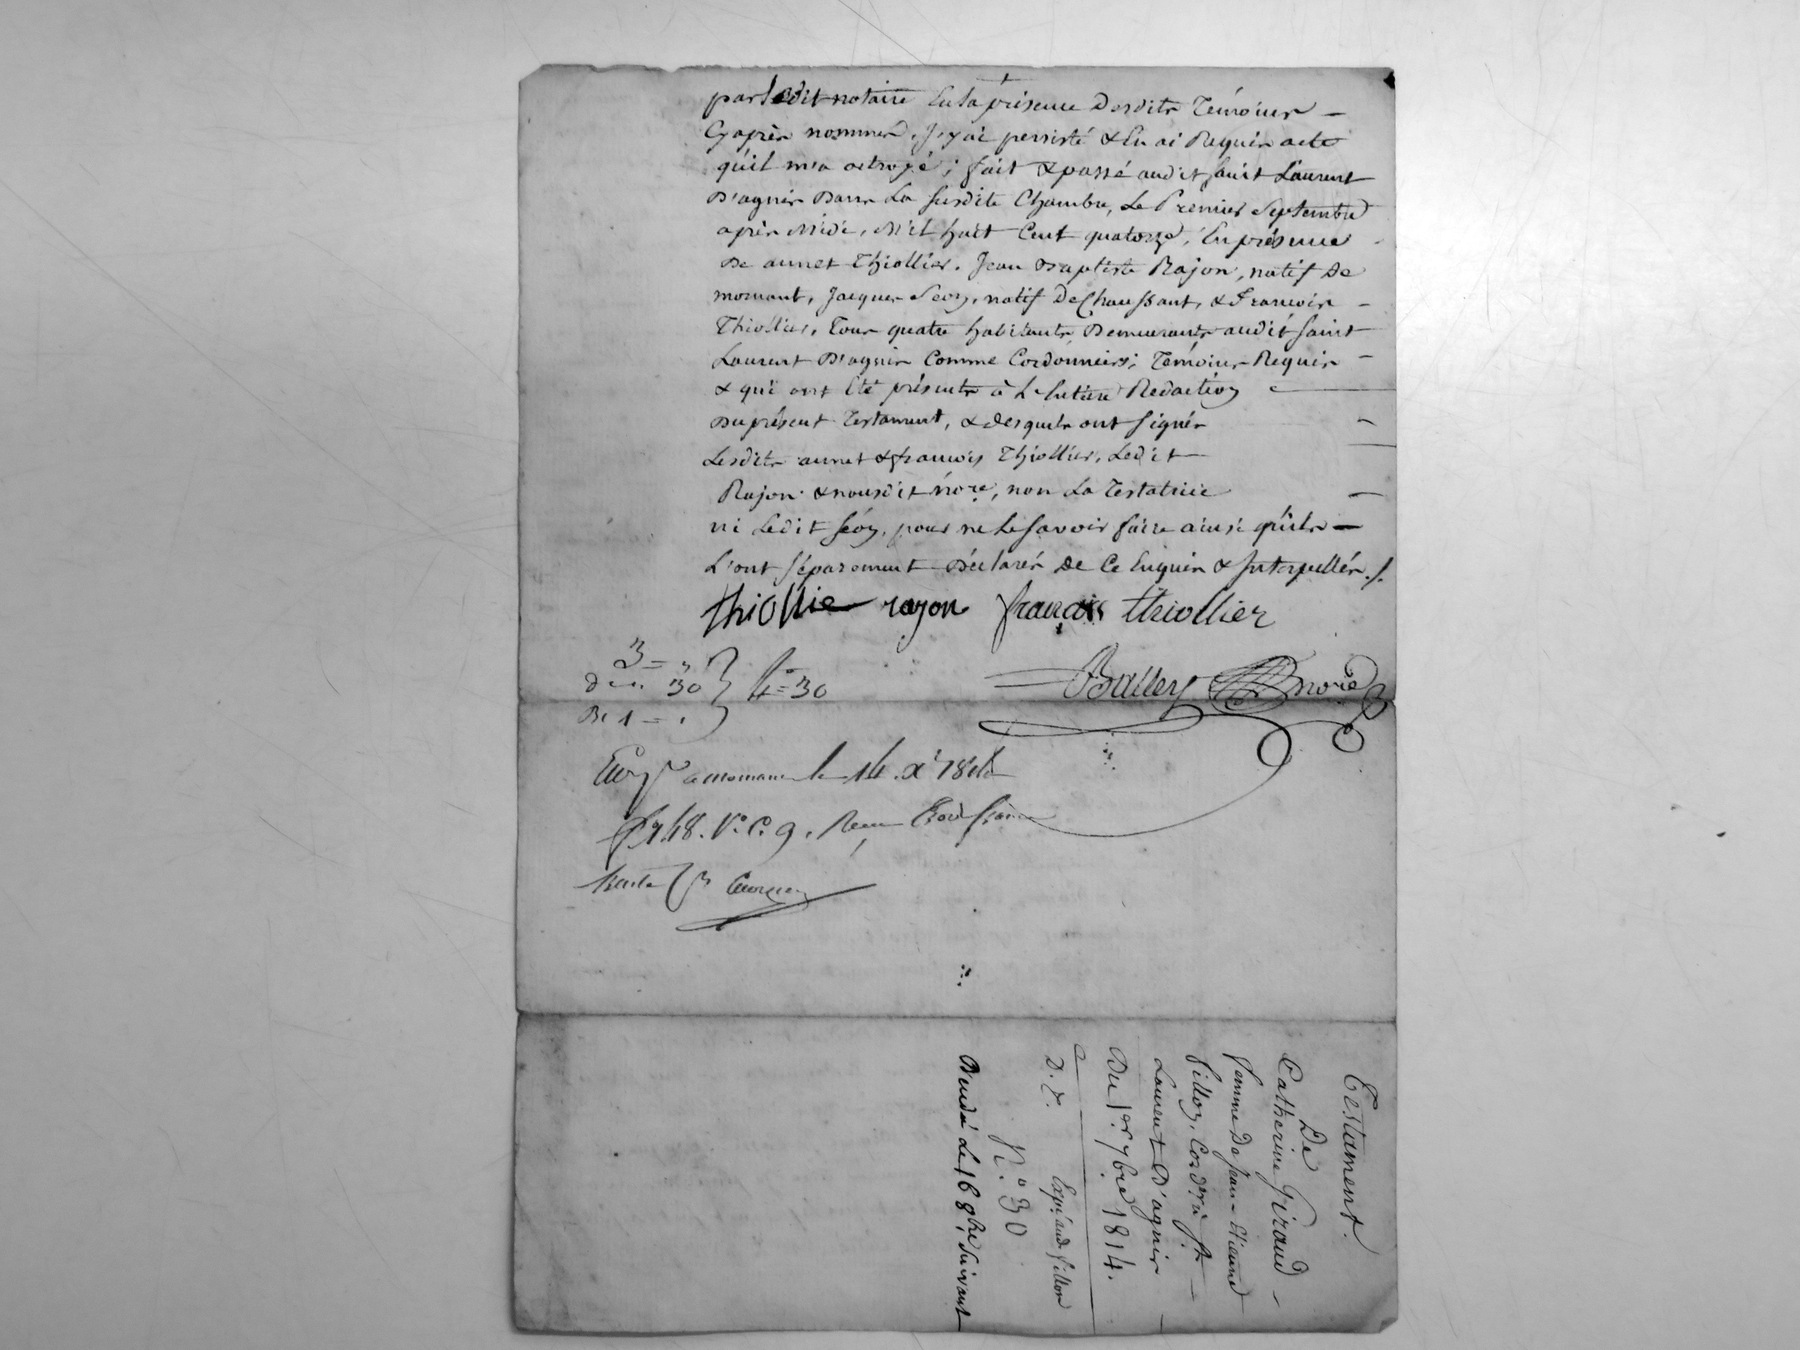 par ledit notaire En la présence Desdits Témoins
Cy après nommés. J'y ai persisté & En ai Requis acte
qu'il m'a octroyé; fait & passé audit saint Laurent
D'agnis Dans La susdite Chambre, Le Premier Septembre
après midi, Mil huit Cent quatorze, En présence
De annet Thiollier, Jean Baptiste Rajon, natif De
mornant, Jacques Séon, natif De Chaussant, & François
Thiollier, Tous quatre habitants Demeurants audit saint
Laurent D'agnis Comme Cordonniers; Témoins Requis
& qui ont Eté présents à L'Entière Redaction
Du présent Testament, & desquels ont signés
Lesdits annet & françois Thiollier, Ledit
Rajon & nousdit nore, non La Testatrice
ni Ledit Séon, pour ne Le savoir faire ainsi qu'ils
L'ont séparément Déclarés De Ce Enquis & Interpellés ./.
thiollie rajon francois thiollier
3 =
30 4 = 30
Balley nore
a mornant le 14 Xe 1814
f° 148. V° C. 9. Reçu trois francs
trente
Testament.
De
Catherine Giraud
femme De Jean Etienne
Fillon, Cordr à St
Laurent D'agnis
Du 1er 7bre 1814.
D. E. Exp. aud. fillon
N.° 30
Le 16 8bre suivant